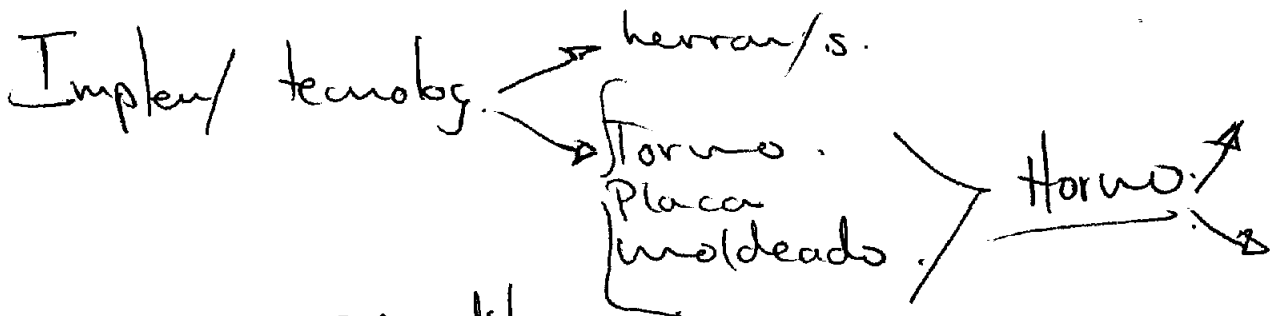 Implem/ tecnolog.
herram/s.
Torno.
Placa
moldeado.
Horno.